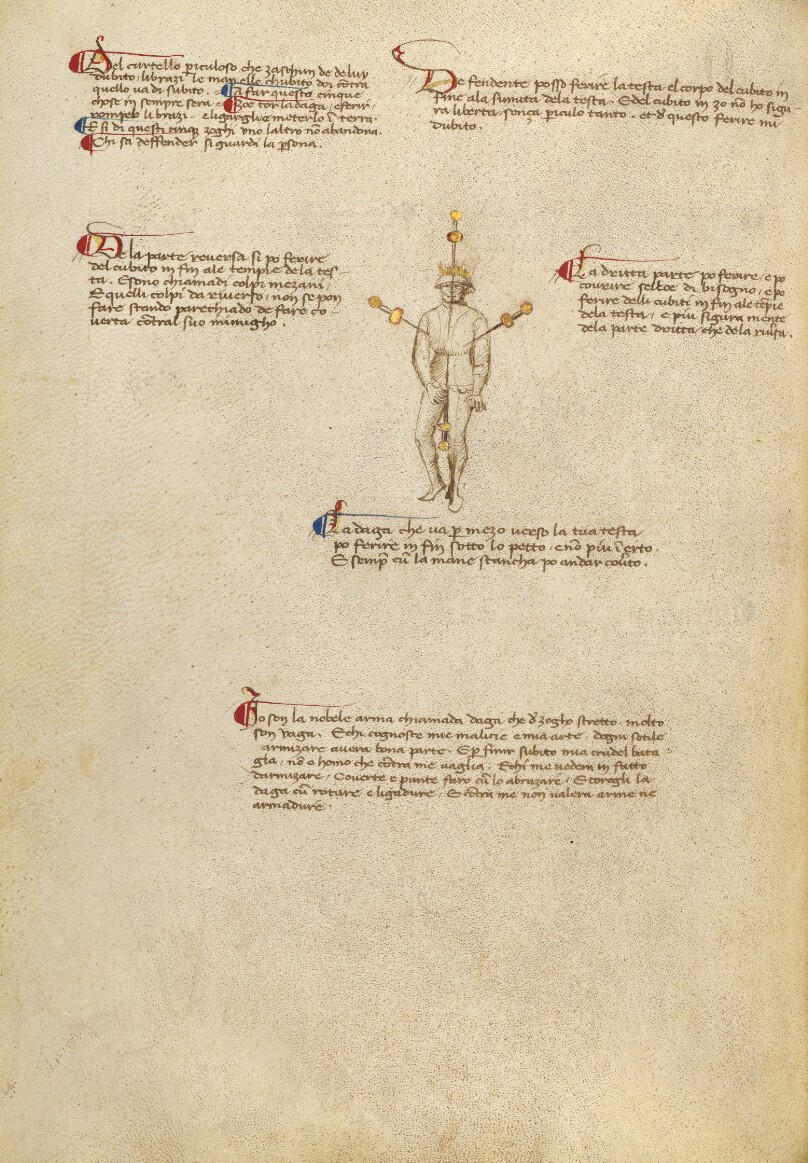 Del cortello piculoso che zaschun de de lui
dubito, li brazi le man elle chubito doi cōtra
quello va di subito. A far questo cinque
chose in sempre sera. Zoe tor la daga, e ferir,
romper li brazi. e ligargli e meterlo ī terra.
E si di questi cinq zoghi uno laltro nō abandona.
Chi sa deffender si guardi la psona.
De fendente posso ferire la testa el corpo del cubito in
fine ala sumita dela testa. E del cubito in zo nō ho sigu
ra liberta, senza piculo tanto. et d questo ferire mi
dubito.
De la parte reversa si po ferire
del cubito in fin ale tempie de la tes
ta. E sono chiamadi colpi mezani,
E quelli colpi da riverso, non se pon
fare stando parechiado de fare co
verta cōtral suo inimigho.
La dritta parte po ferire, e po
covrire se lle di bisogno, e po
ferire delli cubiti in fin ale tēpie
dela testa, e piu sigura mente
dela parte dritta che dela rivsa.
La daga che va p mezo verso la tua testa
po ferire in fin sotto lo petto, e nō piu ī erto.
E semp cū la mane stancha po andar covto.
Io son la nobele arma chiamada daga che d zogho stretto, molto
son vaga. E chi cognosce mie malicie e mia arte, dogni sotile
armizare avera bona parte. E p finir subito mia crudel bata
gla, nō e homo che cōtra me vaglia. E chi me vedera in fatto
darmizare, Coverte e punte faro cū lo abrazare, E torogli la
daga cū roture e ligadure, E cōtra me non valera arme ne
armadure.